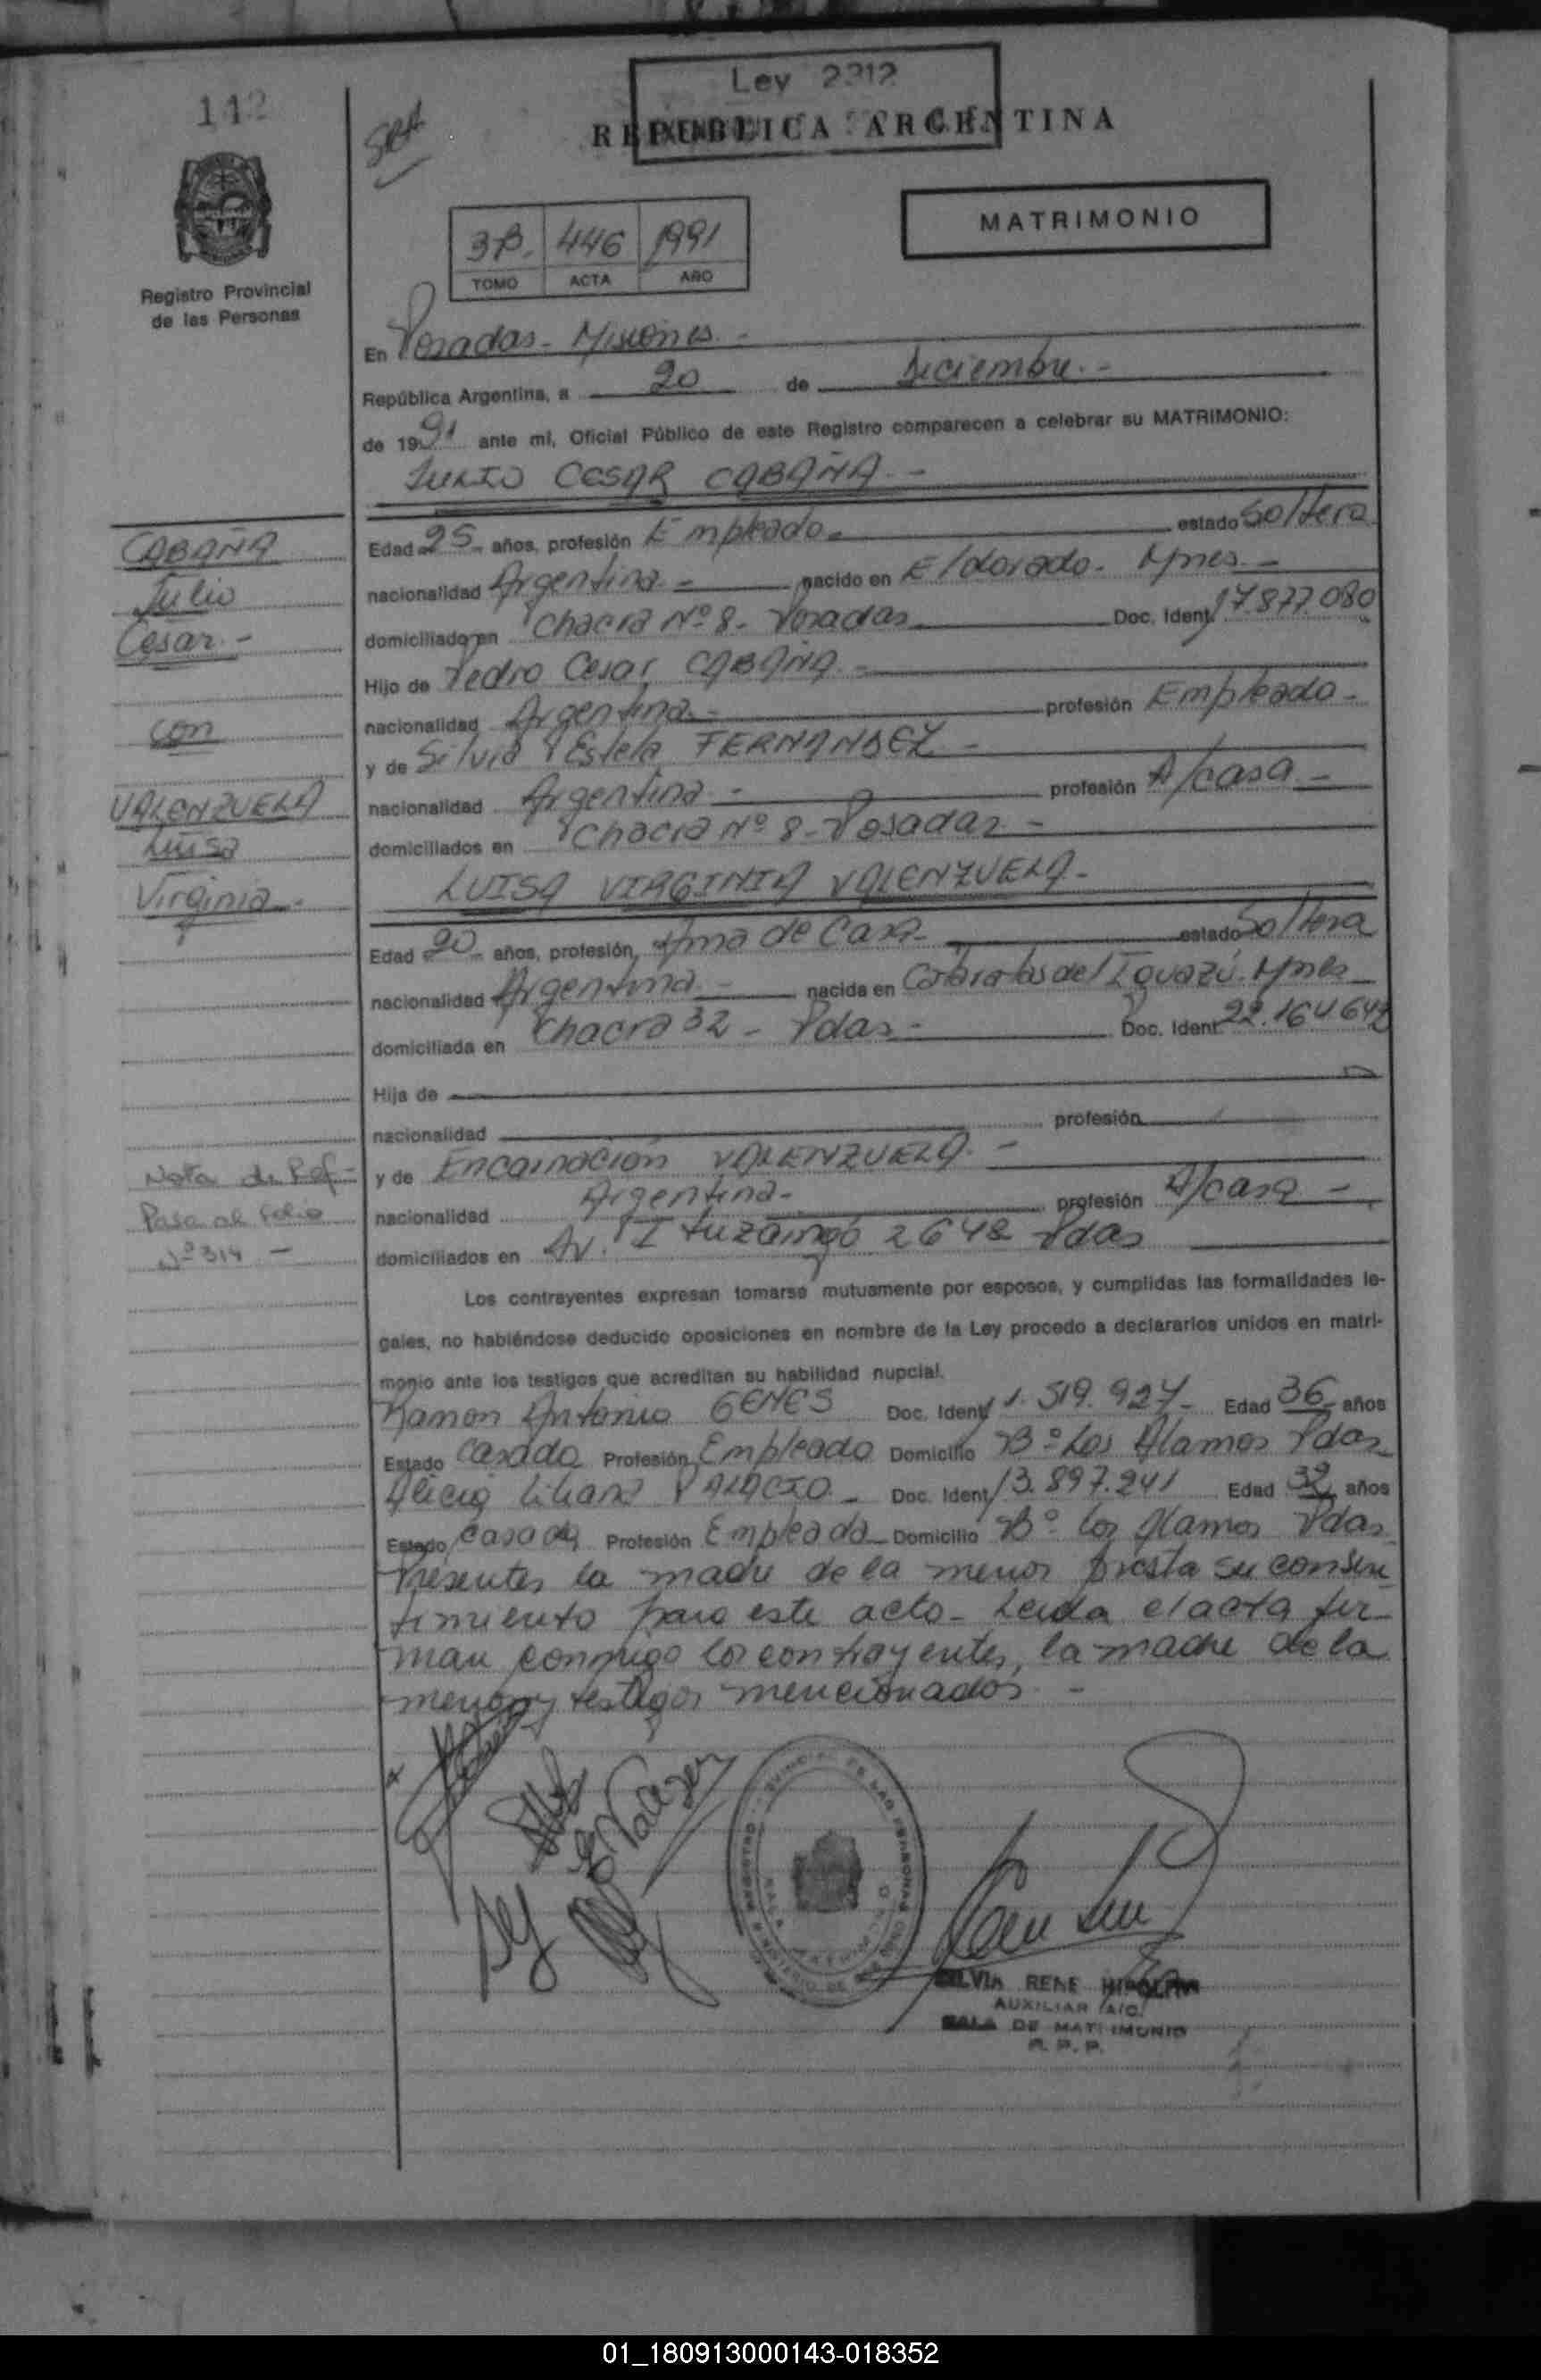 Ley 2312
112
REPUBLICA ARGENTINA
MATRIMONIO
3B. 446 1991
TOMO ACTA AÑO
Registro Provincial
de las Personas
En Posadas - Misiones. -
República Argentina, a 20 de Diciembre. -
de 1991 ante mi, Oficial Público de este Registro comparecen a celebrar su MATRIMONIO:
JULIO CESAR CABAÑA. -
CABAÑA
Julio
Cesar. -
con
VALENZUELA
Luisa
Virginia. -
Edad 25 años, profesión Empleado - estado Soltero
nacionalidad Argentina. - nacido en Eldorado - Mnes. -
domiciliado en Chacra Nº 8 - Posadas Doc. Ident. 17.877.080
Hijo de Pedro Cesar CABAÑA. -
nacionalidad Argentina. - profesión Empleado -
y de Silvia Estela FERNANDEZ -
nacionalidad Argentina. - profesión A/casa -
domiciliados en Chacra Nº 8 - Posadas -
LUISA VIRGINIA VALENZUELA -
Edad 20 años, profesión, Ama de Casa - estado Soltera
nacionalidad Argentina. - nacida en Cataratas del Iguazú. Mnes
domiciliada en Chacra 32 - Pdas - Doc. Ident. 22.164.642
Hija de
nacionalidad profesión
y de Encarnación VALENZUELA. -
nacionalidad Argentina - profesión A/casa -
domiciliados en Av. Ituzaingó 2648 Pdas
Nota de Ref -
Pasa al folio
Nº 314 -
Los contrayentes expresan tomarse mutuamente por esposos, y cumplidas las formalidades le-
gales, no habiéndose deducido oposiciones en nombre de la Ley procedo a declararlos unidos en matri-
monio ante los testigos que acreditan su habilidad nupcial.
Ramon Antonio GENES Doc. Ident. 11.519.927 - Edad 36 años
Estado Casado Profesión Empleado Domicilio Bº Los Alamos Pdas
Alicia Liliana PALACIO - Doc. Ident. 13.897.241 Edad 32 años
Estado Casada Profesión Empleada Domicilio Bº los Alamos Pdas
Presentes la madre de la menor presta su consen
timiento para este acto - Leida el acta fir-
man conmigo los contrayentes, la madre de la
menor y testigos mencionados -
SILVIA RENE HIPOLITO
AUXILIAR A/C.
SALA DE MATRIMONIO
R. P. P.
01_180913000143-018352